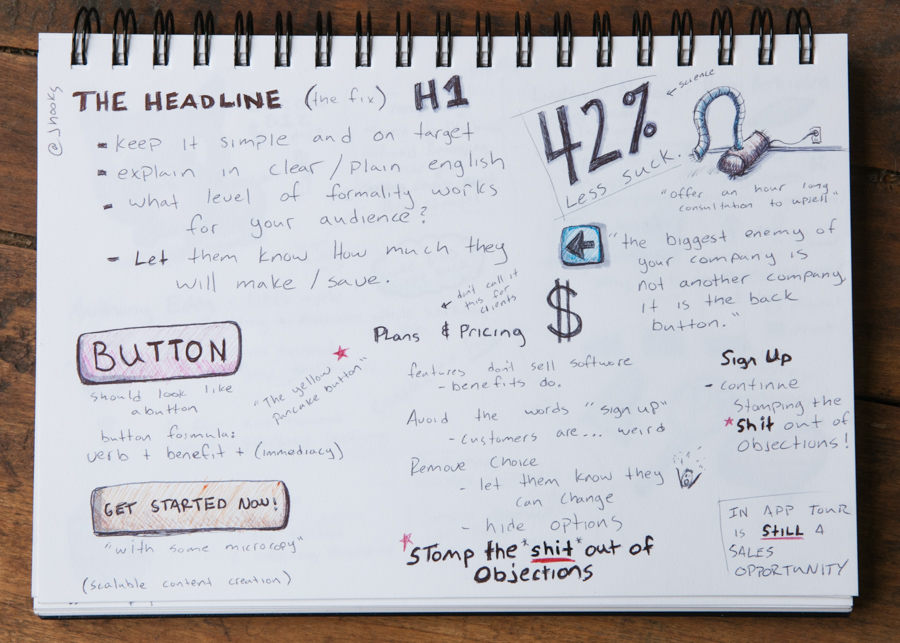 @jhooks
THE HEADLINE (the fix) H1
- keep it simple and on target
- explain in clear/plain english
- what level of formality works
for your audience?
- Let them know How much they
will make/save.
42%
Less suck.
← SCIENCE
"offer an hour long
consultation to upsell"
"the biggest enemy of
your company is
not another company,
it is the back
button."
BUTTON
should look like
a button
button formula:
verb + benefit + (immediacy)
"The yellow
pancake button."
GET STARTED NOW!
"with some microcopy"
(scalable content creation)
don't call it
this for
clients
Plans & Pricing $
features don't sell software
- benefits do.
Avoid the words "sign up"
- customers are... weird
Remove Choice
- let them know they
can change
- hide options
*Stomp the *shit* out of
Objections
Sign Up
- continue
Stomping the
*shit out of
Objections!
IN APP TOUR
IS STILL A
SALES
OPPORTUNITY